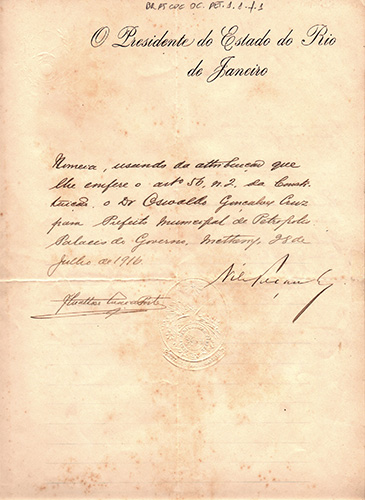 BR RJ COC OC. PET. 1. 1. f. 1
O Presidente do Estado do Rio
de Janeiro
Nomeia, usando da attribuição que
lhe confere o artº 56, n. 2. da Consti-
tuição, o Dr Oswaldo Gonçalves Cruz
para Prefeito Municipal de Petropolis
Palacio do Governo, Nictheroy, 28 de
Julho de 1916.
Nilo Peçanha